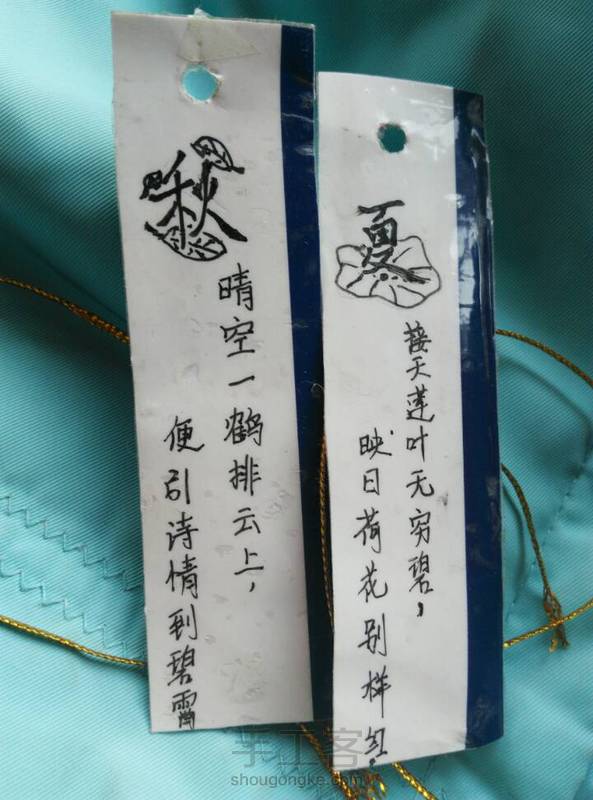 秋
晴空一鹤排云上，
便引诗情到碧霄
夏
接天莲叶无穷碧，
映日荷花别样红。
手工客
shougongke.com